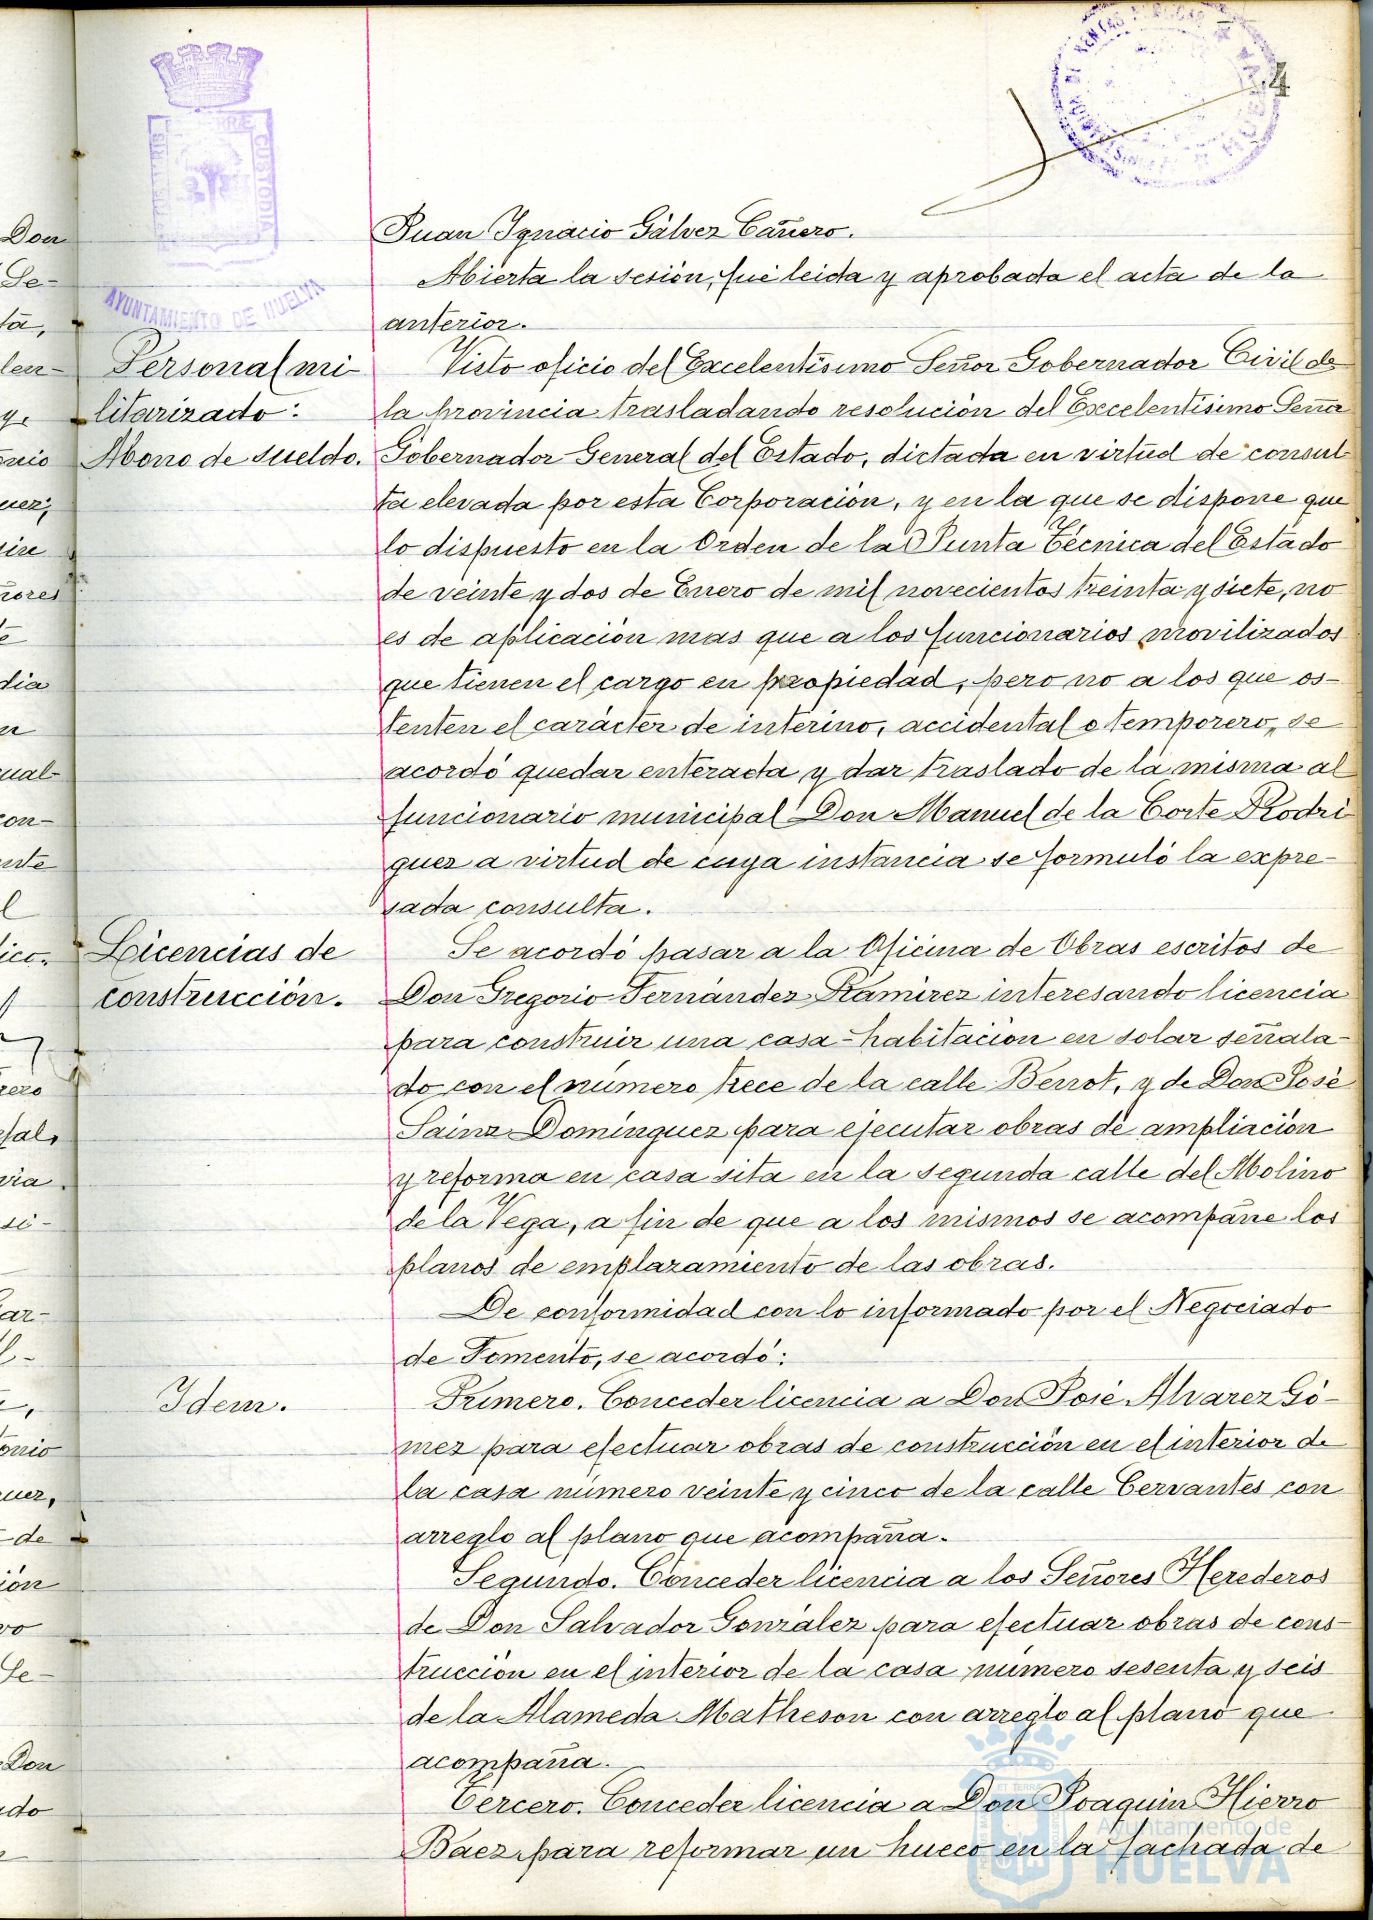 4
AYUNTAMIENTO DE HUELVA
CUSTODIA
Juan Ignacio Gálvez Cañero.
Abierta la sesión, fué leida y aprobada el acta de la
anterior.
Personal mi-
litarizado:
Abono de sueldo.
Visto oficio del Excelentísimo Señor Gobernador Civil de
la provincia trasladando resolución del Excelentísimo Señor
Gobernador General del Estado, dictada en virtud de consul-
ta elevada por esta Corporación, y en la que se dispone que
lo dispuesto en la Orden de la Junta Técnica del Estado
de veinte y dos de Enero de mil novecientos treinta y siete, no
es de aplicación mas que a los funcionarios movilizados
que tienen el cargo en propiedad, pero no a los que os-
tenten el carácter de interino, accidental o temporero, se
acordó quedar enterada y dar traslado de la misma al
funcionario municipal Don Manuel de la Corte Rodrí
guez a virtud de cuya instancia se formuló la expre-
sada consulta.
Licencias de
construcción.
Se acordó pasar a la Oficina de Obras escritos de
Don Gregorio Fernández Ramírez interesando licencia
para construir una casa-habitación en solar señala-
do con el número trece de la calle Berrot, y de Don José
Sainz Domínguez para ejecutar obras de ampliación
y reforma en casa sita en la segunda calle del Molino
de la Vega, a fin de que a los mismos se acompañe los
planos de emplazamiento de las obras.
De conformidad con lo informado por el Negociado
de Fomento, se acordó:
Idem.
Primero. Conceder licencia a Don José Alvarez Gó-
mez para efectuar obras de construcción en el interior de
la casa número veinte y cinco de la calle Cervantes con
arreglo al plano que acompaña.
Segundo. Conceder licencia a los Señores Herederos
de Don Salvador González para efectuar obras de cons-
trucción en el interior de la casa número sesenta y seis
de la Alameda Matheson con arreglo al plano que
acompaña.
Tercero. Conceder licencia a Don Joaquin Hierro
Baez para reformar un hueco en la fachada de
Ayuntamiento de
HUELVA